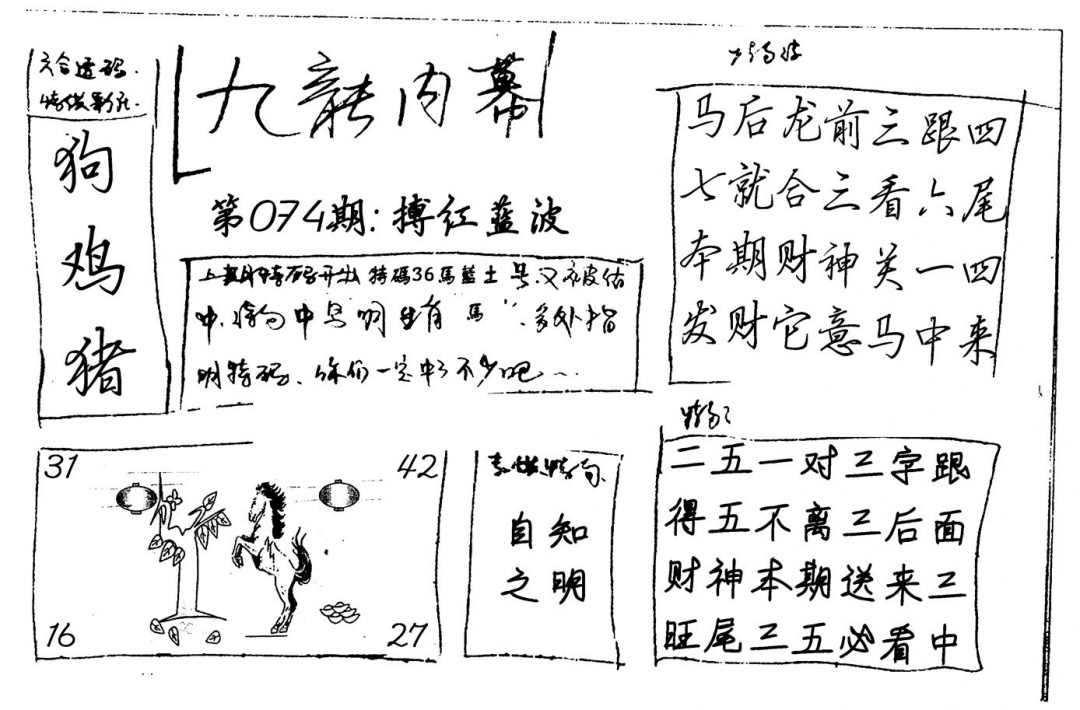 六合透码.
九龍内幕
狗
鸡
猪
第074期:搏红蓝波
上期特码开出特碼36馬藍土号.又被估
中.特句中号明生肖"馬".多处指
明特码.你们一定中了不少吧...
马后龙前三跟四
七就合三看六尾
本期财神关一四
发财它意马中来
31
42
16
27
自知
之明
二五一对三字跟
得五不离三后面
财神本期送来三
旺尾三五必看中